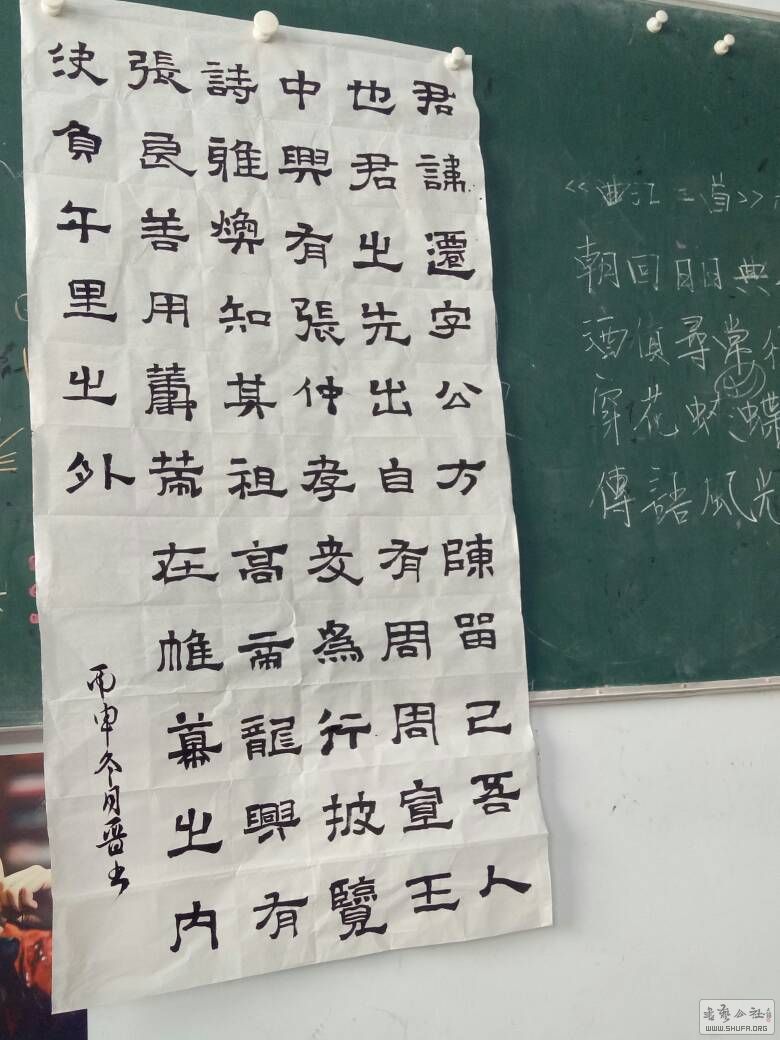 君諱遷字公方陳留己吾人
也君之先出自有周周宣王
中興有張仲孝友為行披覽
詩雅煥知其祖高帝龍興有
張良善用籌策在帷幕之內
決負千里之外
丙申冬月晋书
《曲江二首》
朝回日日典
酒債尋常行
穿花蛱蝶
傳語風光
書藝公社
WWW.SHUFA.ORG